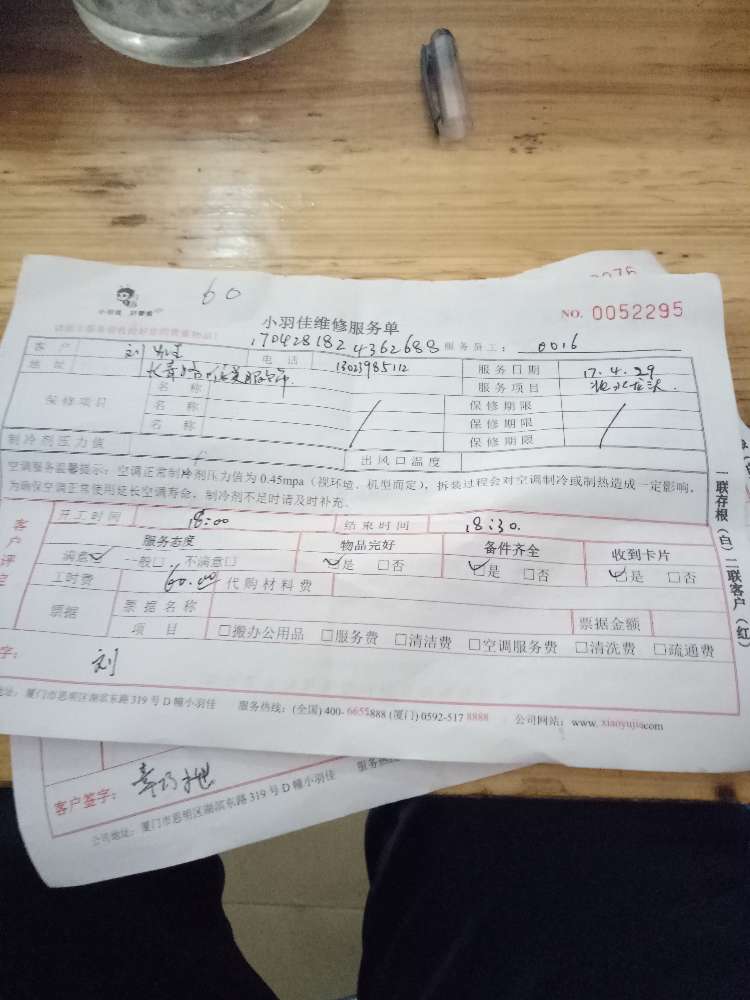 0076
60
小羽佳 好管家
NO. 0052295
小羽佳维修服务单
170428182 4362688 服务员工: 0016
客户 刘 电话 13023985112 服务日期 17.4.29
地址 长青 服务项目 水龙头
保修项目 名称 保修期限
名称 保修期限
名称 保修期限
制冷剂压力值 出风口温度
空调服务温馨提示:空调正常制冷剂压力值为0.45mpa(视环境、机型而定),拆装过程会对空调制冷或制热造成一定影响,
为确保空调正常使用延长空调寿命,制冷剂不足时请及时补充。
客户评定
开工时间 18:00 结束时间 18:30.
服务态度 物品完好 备件齐全 收到卡片
满意☑ 一般□ 不满意□ ☑是 □否 ☑是 □否 ☑是 □否
工时费 60.00 代购材料费
票据 票据名称 票据金额
项目 □搬办公用品 □服务费 □清洁费 □空调服务费 □清洗费 □疏通费
字: 刘
地址:厦门市思明区湖滨东路319号D幢小羽佳 服务热线:(全国)400-6655888 (厦门)0592-517 8888 公司网站:www.xiaoyujia.com
一联存根(白)二联客户(红)
客户签字:
公司地址:厦门市思明区湖滨东路319号D幢小羽佳 服务热